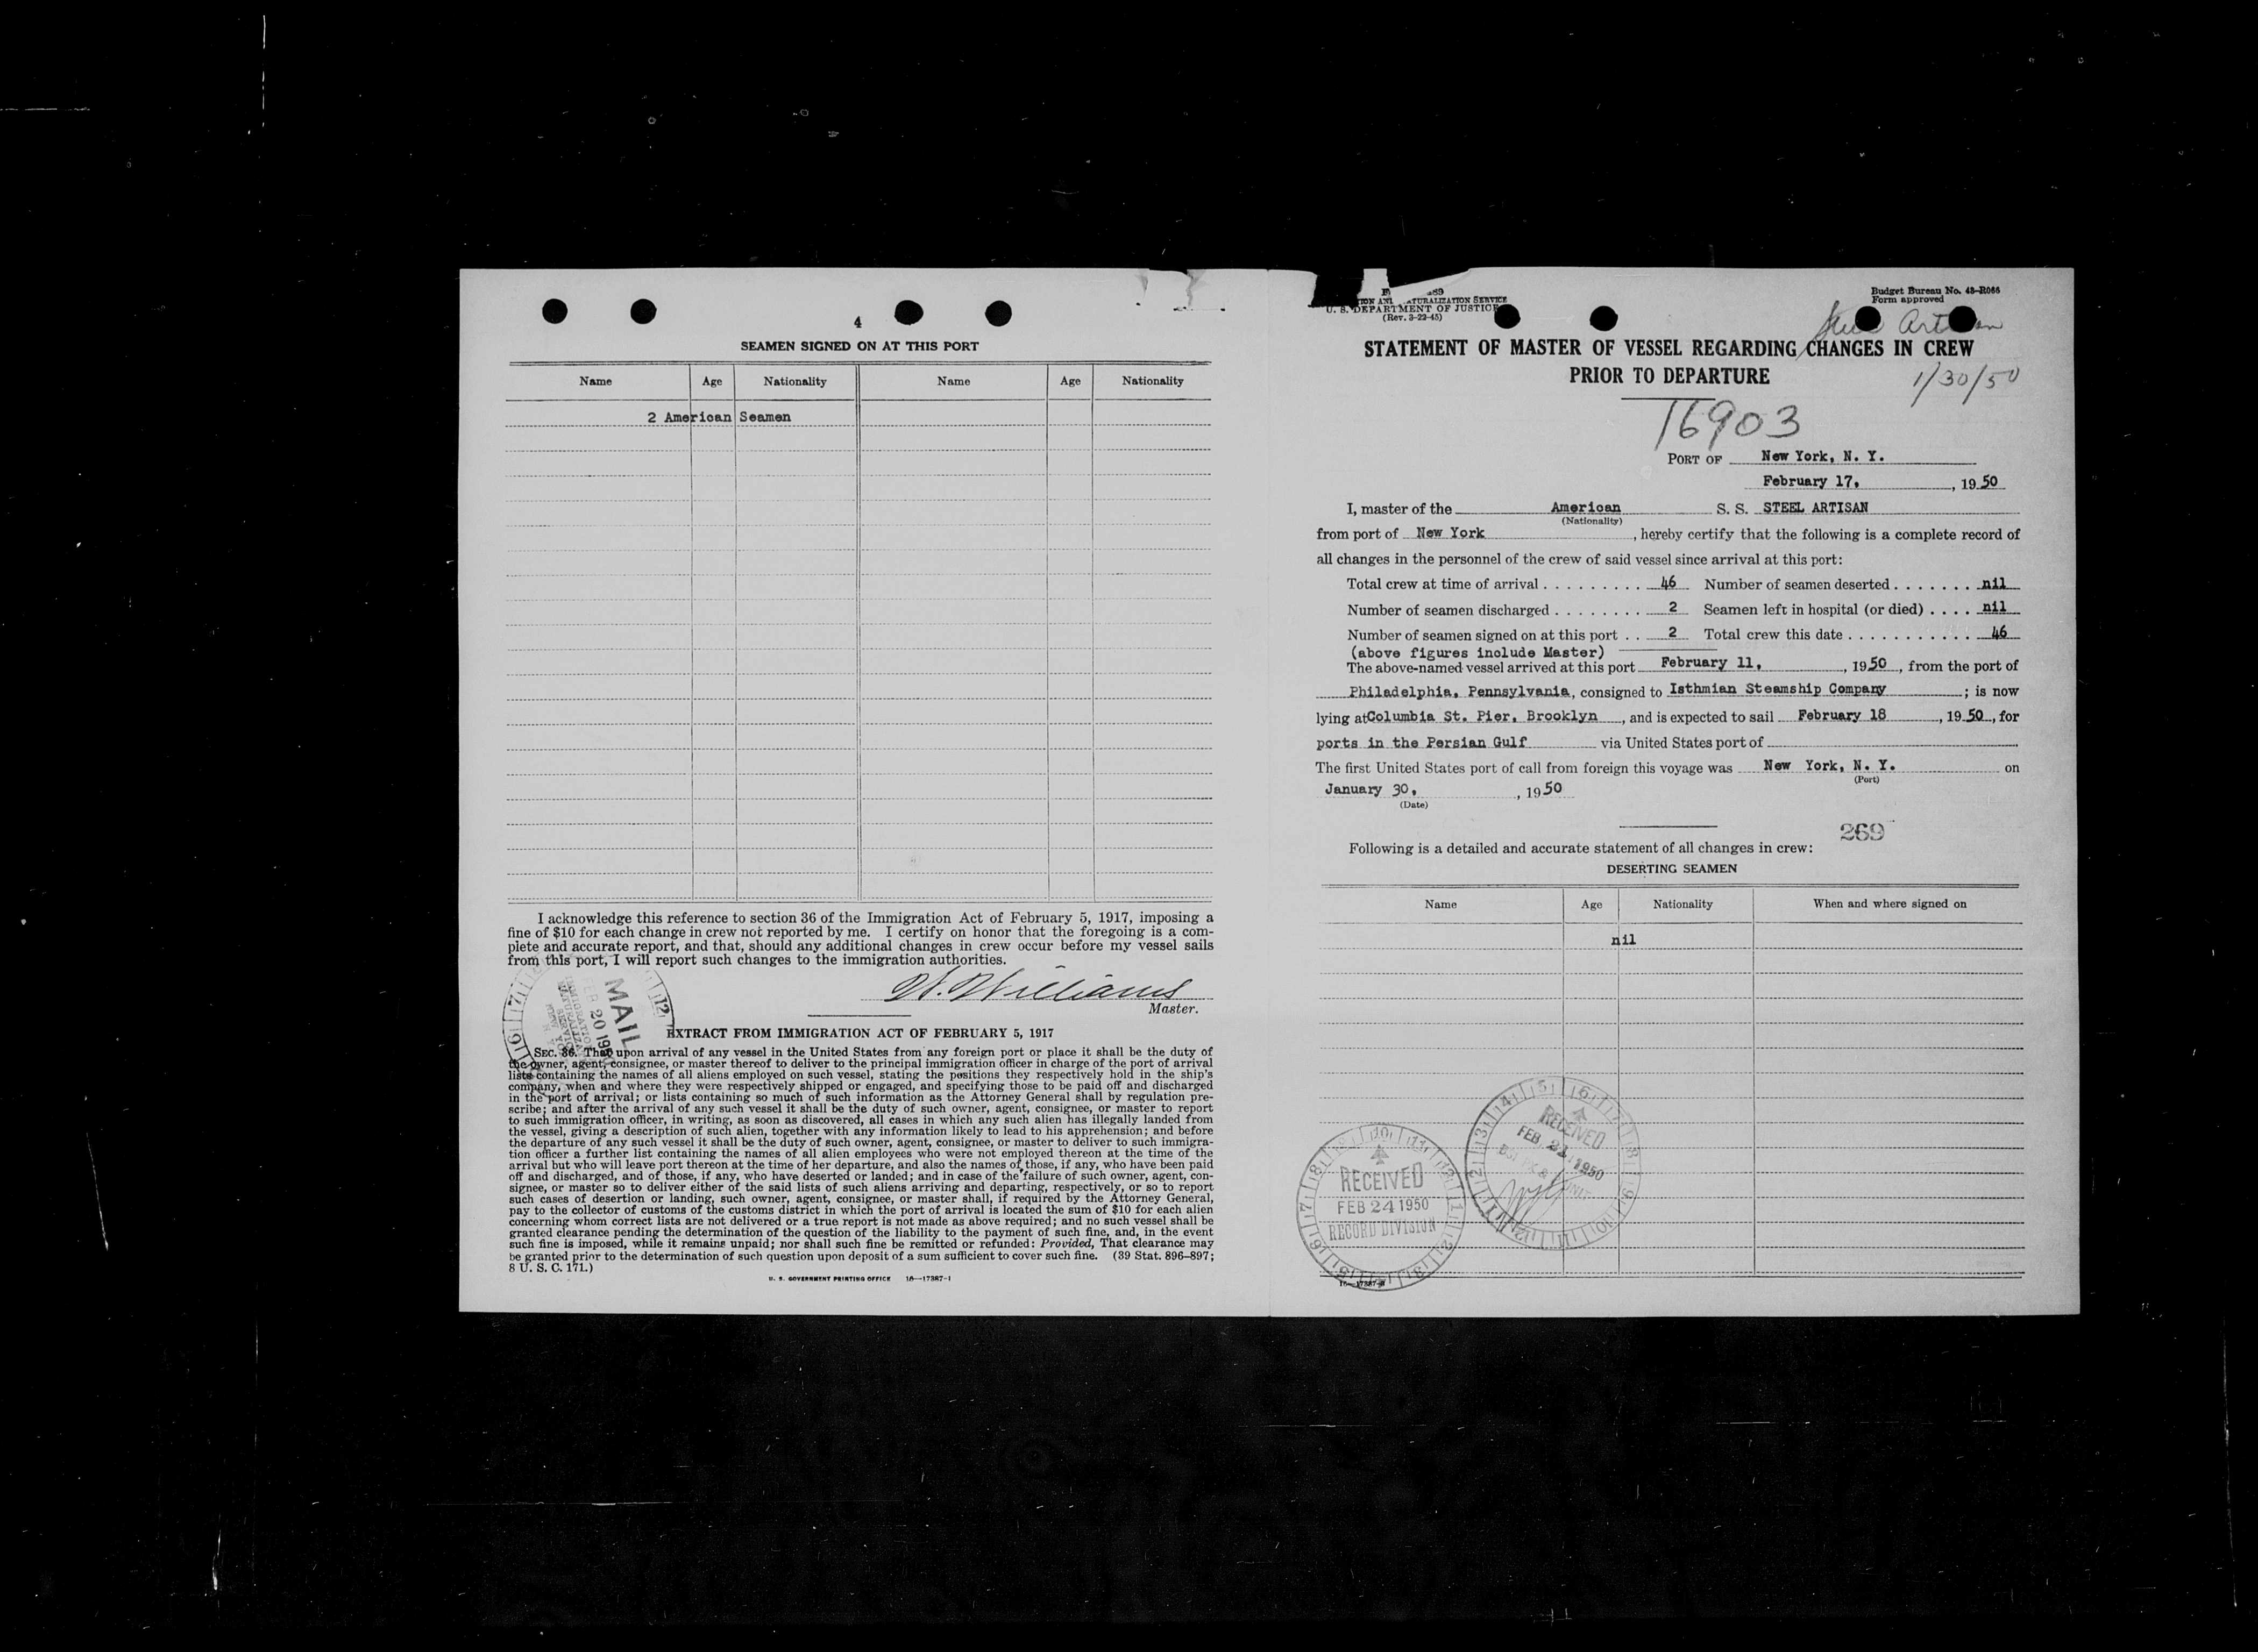 4
SEAMEN SIGNED ON AT THIS PORT
Name Age Nationality Name Age Nationality
2 American Seamen
I acknowledge this reference to section 36 of the Immigration Act of February 5, 1917, imposing a
fine of $10 for each change in crew not reported by me. I certify on honor that the foregoing is a com-
plete and accurate report, and that, should any additional changes in crew occur before my vessel sails
from this port, I will report such changes to the immigration authorities.
Williams
Master.
MAIL
FEB 20 19
EXTRACT FROM IMMIGRATION ACT OF FEBRUARY 5, 1917
SEC. 36. That upon arrival of any vessel in the United States from any foreign port or place it shall be the duty of
the owner, agent, consignee, or master thereof to deliver to the principal immigration officer in charge of the port of arrival
lists containing the names of all aliens employed on such vessel, stating the positions they respectively hold in the ship's
company, when and where they were respectively shipped or engaged, and specifying those to be paid off and discharged
in the port of arrival; or lists containing so much of such information as the Attorney General shall by regulation pre-
scribe; and after the arrival of any such vessel it shall be the duty of such owner, agent, consignee, or master to report
to such immigration officer, in writing, as soon as discovered, all cases in which any such alien has illegally landed from
the vessel, giving a description of such alien, together with any information likely to lead to his apprehension; and before
the departure of any such vessel it shall be the duty of such owner, agent, consignee, or master to deliver to such immigra-
tion officer a further list containing the names of all alien employees who were not employed thereon at the time of the
arrival but who will leave port thereon at the time of her departure, and also the names of those, if any, who have been paid
off and discharged, and of those, if any, who have deserted or landed; and in case of the failure of such owner, agent, con-
signee, or master so to deliver either of the said lists of such aliens arriving and departing, respectively, or so to report
such cases of desertion or landing, such owner, agent, consignee, or master shall, if required by the Attorney General,
pay to the collector of customs of the customs district in which the port of arrival is located the sum of $10 for each alien
concerning whom correct lists are not delivered or a true report is not made as above required; and no such vessel shall be
granted clearance pending the determination of the question of the liability to the payment of such fine, and, in the event
such fine is imposed, while it remains unpaid; nor shall such fine be remitted or refunded: Provided, That clearance may
be granted prior to the determination of such question upon deposit of a sum sufficient to cover such fine. (39 Stat. 896–897;
8 U. S. C. 171.)
U. S. GOVERNMENT PRINTING OFFICE 16—17387-1
SERVICE
U. S. DEPARTMENT OF JUSTICE
(Rev. 3-22-45)
Budget Bureau No. 43-R066
Form approved
STATEMENT OF MASTER OF VESSEL REGARDING CHANGES IN CREW
PRIOR TO DEPARTURE
1/30/50
T6903
PORT OF New York, N. Y.
February 17, , 19 50
I, master of the American S. S. STEEL ARTISAN
(Nationality)
from port of New York , hereby certify that the following is a complete record of
all changes in the personnel of the crew of said vessel since arrival at this port:
Total crew at time of arrival . . . . . . . . . 46 Number of seamen deserted . . . . . . . nil
Number of seamen discharged . . . . . . . . 2 Seamen left in hospital (or died) . . . . nil
Number of seamen signed on at this port . . 2 Total crew this date . . . . . . . . . . . 46
(above figures include Master)
The above-named vessel arrived at this port February 11, , 19 50 , from the port of
Philadelphia, Pennsylvania, consigned to Isthmian Steamship Company ; is now
lying at Columbia St. Pier, Brooklyn , and is expected to sail February 18 , 19 50 , for
ports in the Persian Gulf via United States port of
The first United States port of call from foreign this voyage was New York, N. Y. on
(Port)
January 30, , 19 50
(Date)
269
Following is a detailed and accurate statement of all changes in crew:
DESERTING SEAMEN
Name Age Nationality When and where signed on
nil
RECEIVED
FEB 1950
RECEIVED
FEB 24 1950
RECORD DIVISION